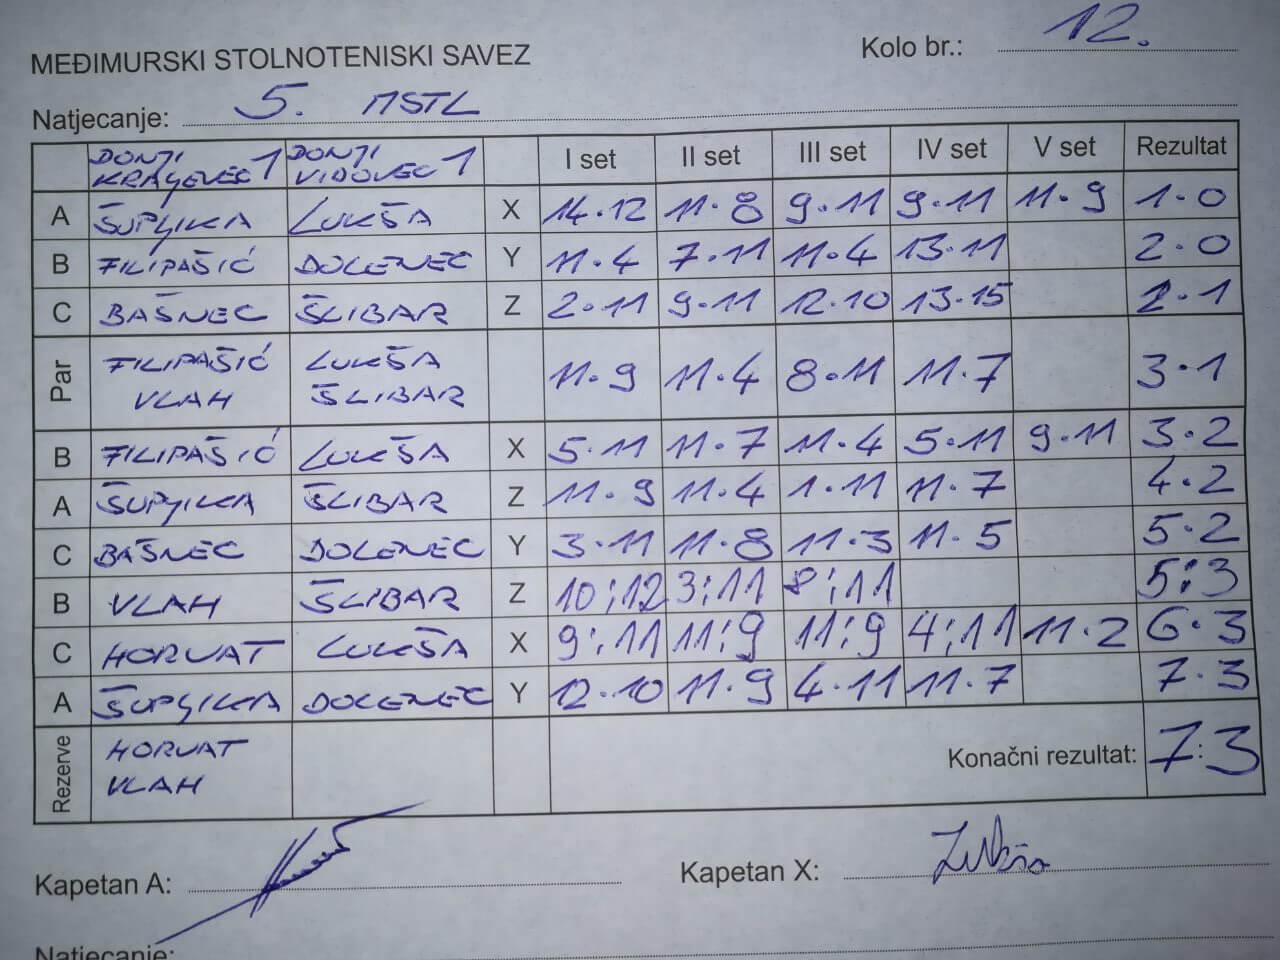 MEĐIMURSKI STOLNOTENISKI SAVEZ
Kolo br.: 12.
Natjecanje: 5. MSTL
DONJI KRALJEVEC 1 DONJI VIDOVEC 1 I set II set III set IV set V set Rezultat
A ŠUPLJIKA LUKŠA X 14·12 11·8 9·11 9·11 11·9 1·0
B FILIPAŠIĆ DOLENEC Y 11·4 7·11 11·4 13·11 2·0
C BAŠNEC ŠLIBAR Z 2·11 9·11 12·10 13·15 2·1
Par FILIPAŠIĆ VLAH LUKŠA ŠLIBAR 11·9 11·4 8·11 11·7 3·1
B FILIPAŠIĆ LUKŠA X 5·11 11·7 11·4 5·11 9·11 3·2
A ŠUPLJIKA ŠLIBAR Z 11·9 11·4 1·11 11·7 4·2
C BAŠNEC DOLENEC Y 3·11 11·8 11·3 11·5 5·2
B VLAH ŠLIBAR Z 10:12 3:11 8:11 5:3
C HORVAT LUKŠA X 9:11 11:9 11:9 4:11 11·2 6·3
A ŠUPLJIKA DOLENEC Y 12·10 11·9 4·11 11·7 7·3
Rezerve HORVAT VLAH Konačni rezultat: 7:3
Kapetan A:
Kapetan X: Lukša
Natjecanje: